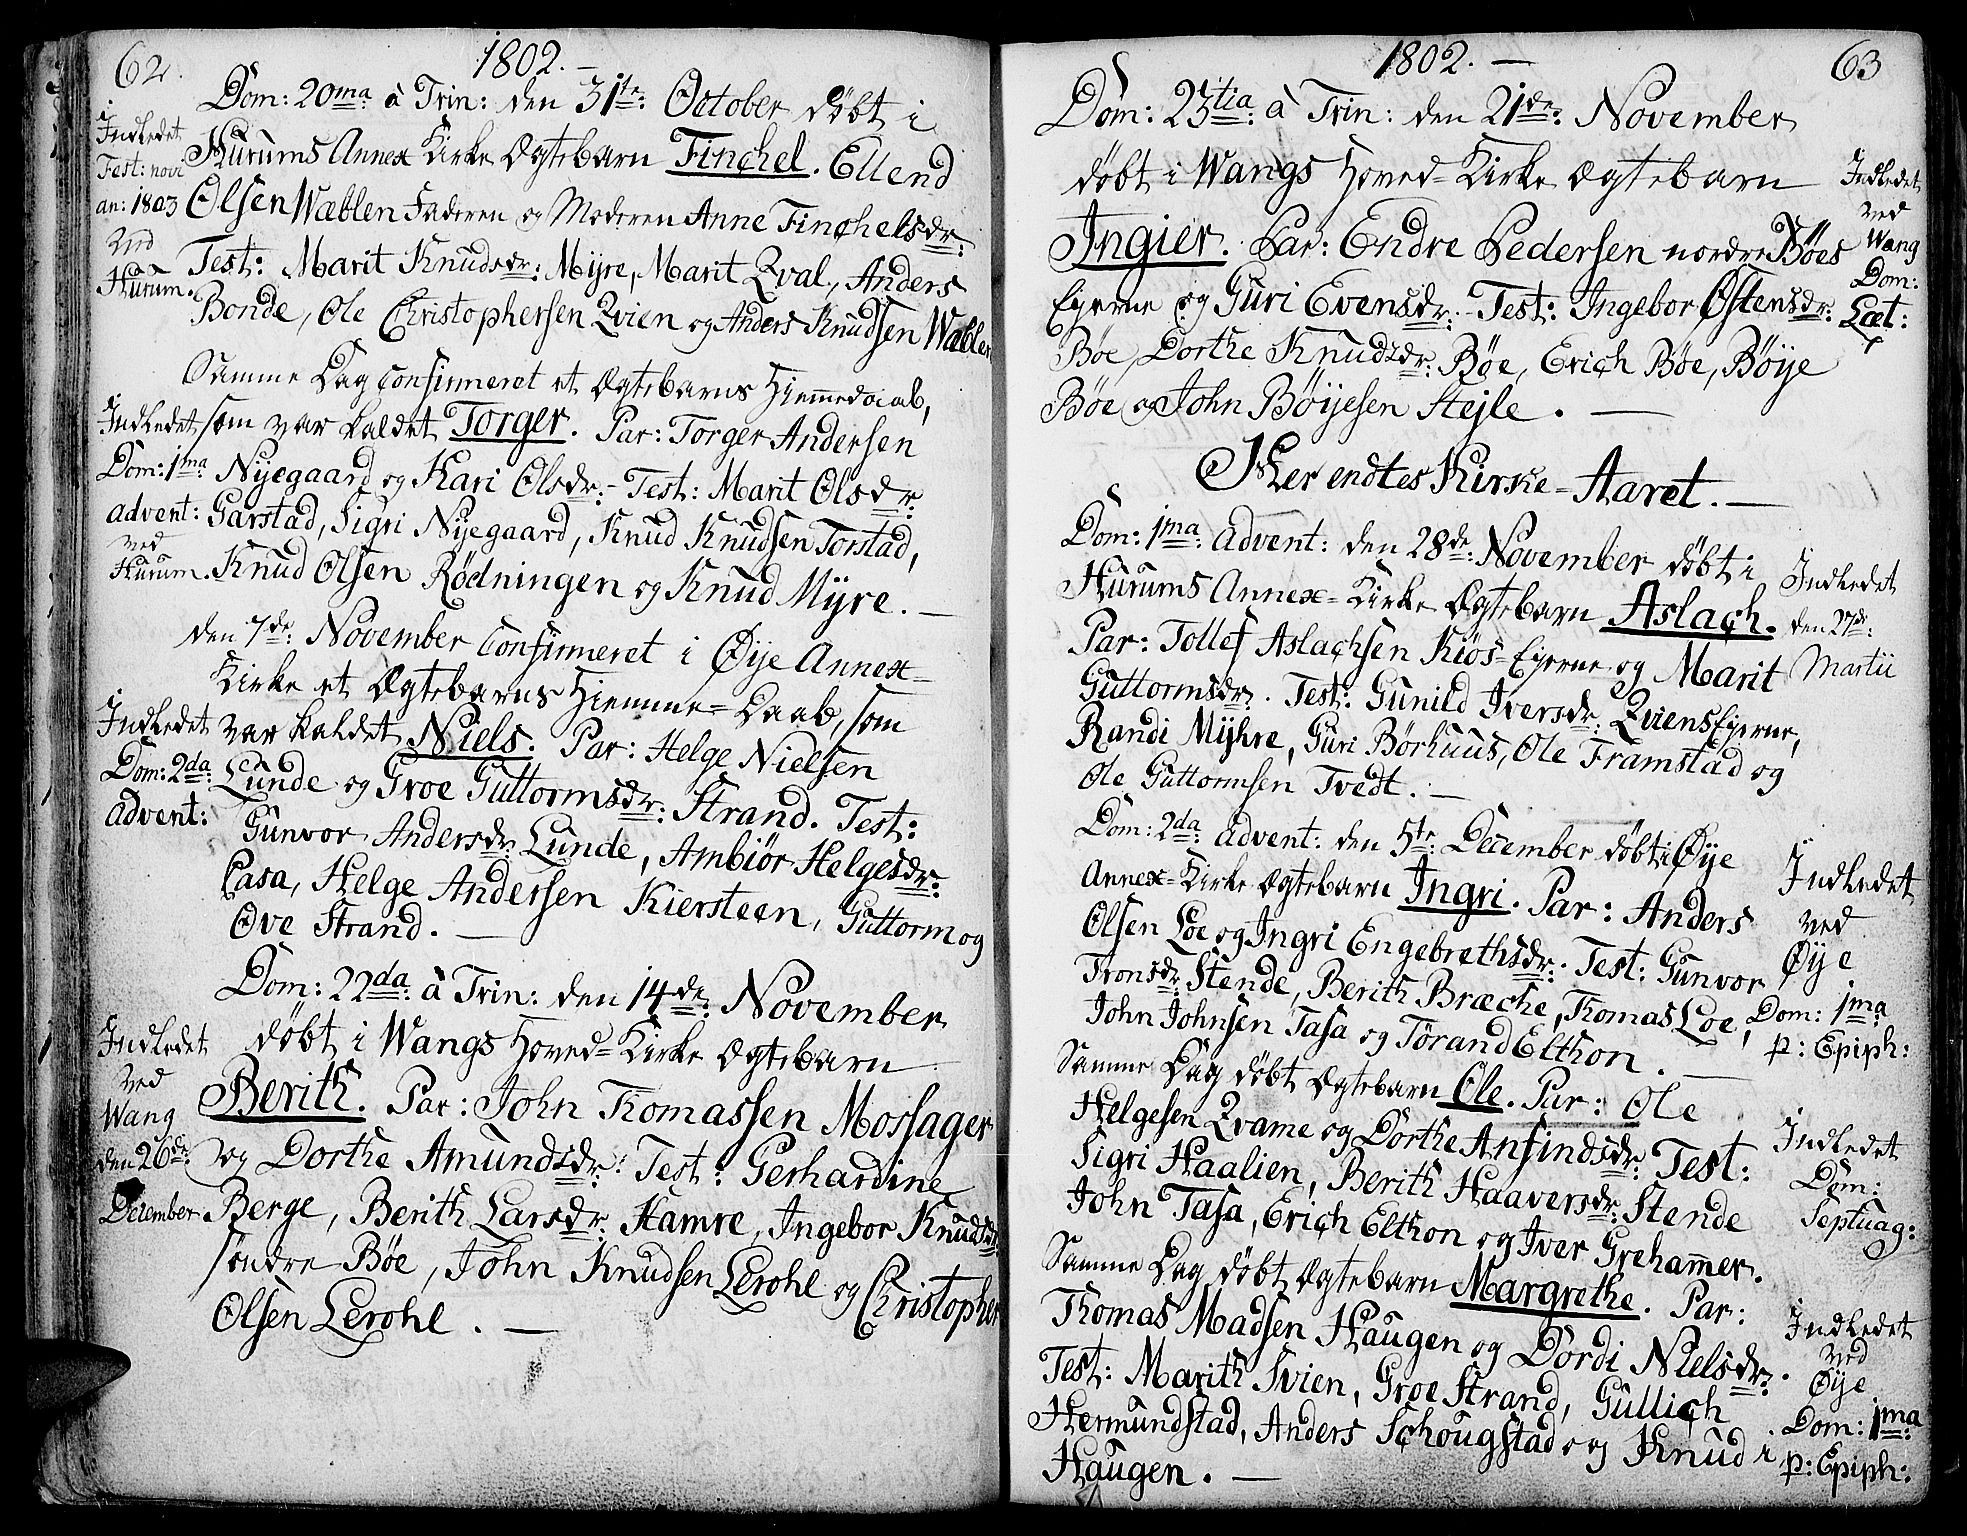 62.
1802. —
Dom: 20ma à Trin: den 31te October døbt i
Hurums Annex Kirke Ægtebarn Finchel. Ellend
Olsen Wæblen Faderen og Moderen Anne Finchelsdr:
Test: Marit Knudsdr: Myre, Marit Qval, Anders
Bonde, Ole Christophersen Qvien og Anders Knudsen Wæblen
Indledet
Fest: novi
an: 1803
ved
Hurum.
Samme Dag confirmeret et Ægtebarns Hjemmedaab,
som var kaldet Torger. Par: Torger Andersen
Nyegaard og Kari Olsdr: - Test: Marit Olsdr:
Garstad, Sigri Nyegaard, Knud Knudsen Torstad,
Knud Olsen Rødningen og Knud Myre. —
Indledet
Dom: 1ma
advent:
ved
Hurum.
den 7de November confirmeret i Øye Annex-
Kirke et Ægtebarns Hiemme=Daab, som
var kaldet Niels. Par: Helge Nielsen
Lunde og Groe Guttormsdr: Strand. Test:
Gunvor Andersdr: Lunde, Ambiør Helgesdr:
Casa, Helge Andersen Kiersteen, Guttorm og
Ove Strand. —
Indledet
Dom: 2da:
advent:
Dom: 22da: à Trin: den 14de November
døbt i Wangs Hoved=Kirke Ægtebarn
Berith. Par: John Thomassen Mossager
og Dorthe Amundsdr: Test: Gerhardine
Berge, Berith Larsdr: Hamre, Ingebor Knudsdr:
søndre Bøe, John Knudsen Lerohl og Christopher
Olsen Lerohl. —
Indledet
ved
Wang
den 26de
December
1802. —
63
Dom: 23tia: à Trin: den 21de: November
døbt i Wangs Hoved=Kirke Ægtebarn
Ingier. Par: Endre Pedersen nordre Bøes
Ejerne og Guri Evensdr: - Test: Ingebor Østensdr:
Bøe, Dorthe Knudsdr: Bøe, Erich Bøe, Bøije
Bøe og John Bøijesen Stejle. —
Indledet
ved
Wang
Dom:
Læt:
Her endtes Kirke-Aaret. —
Dom: 1ma: Advent: den 28de: November døbt i
Hurums Annex=Kirke Ægtebarn Aslach.
Par: Tollef Aslachsen Kiøs-Ejerne og Marit
Guttormsdr. Test: Gunild Iversdr: Qviens Ejerne,
Randi Myhre, Guri Børhuus, Ole Framstad og
Ole Guttormsen Tvedt. —
Indledet
den 27de:
Martii
Dom: 2da: advent: den 5te: December døbt i Øye
Annex=Kirke Ægtebarn Ingri. Par: Anders
Olsen Loe og Ingri Engebrethsdr: Test: Gunvor
Tronsdr: Stende, Berith Bræche, Thomas Loe,
John Johnsen Tasa og Torand Elthon. —
Indledet
ved
Øye
Dom: 1ma
p: Epiph:
Samme Dag døbt Ægtebarn Ole. Par: Ole
Helgesen Qvame og Dorthe Anfindsdr: Test:
Sigri Haalien, Berith Haaversdr: Stende
John Tasa, Erich Elthon og Iver Grehamer.
Indledet
Dom:
Septuag:
Samme Dag døbt Ægtebarn Margrethe. Par:
Thomas Madsen Haugen og Dordi Nielsdr:
Test: Marith Svien, Groe Strand, Gullich
Hermundstad, Anders Schougstad og Knud i
Haugen. —
Indledet
ved
Øye
Dom: 1ma
p: Epiph: